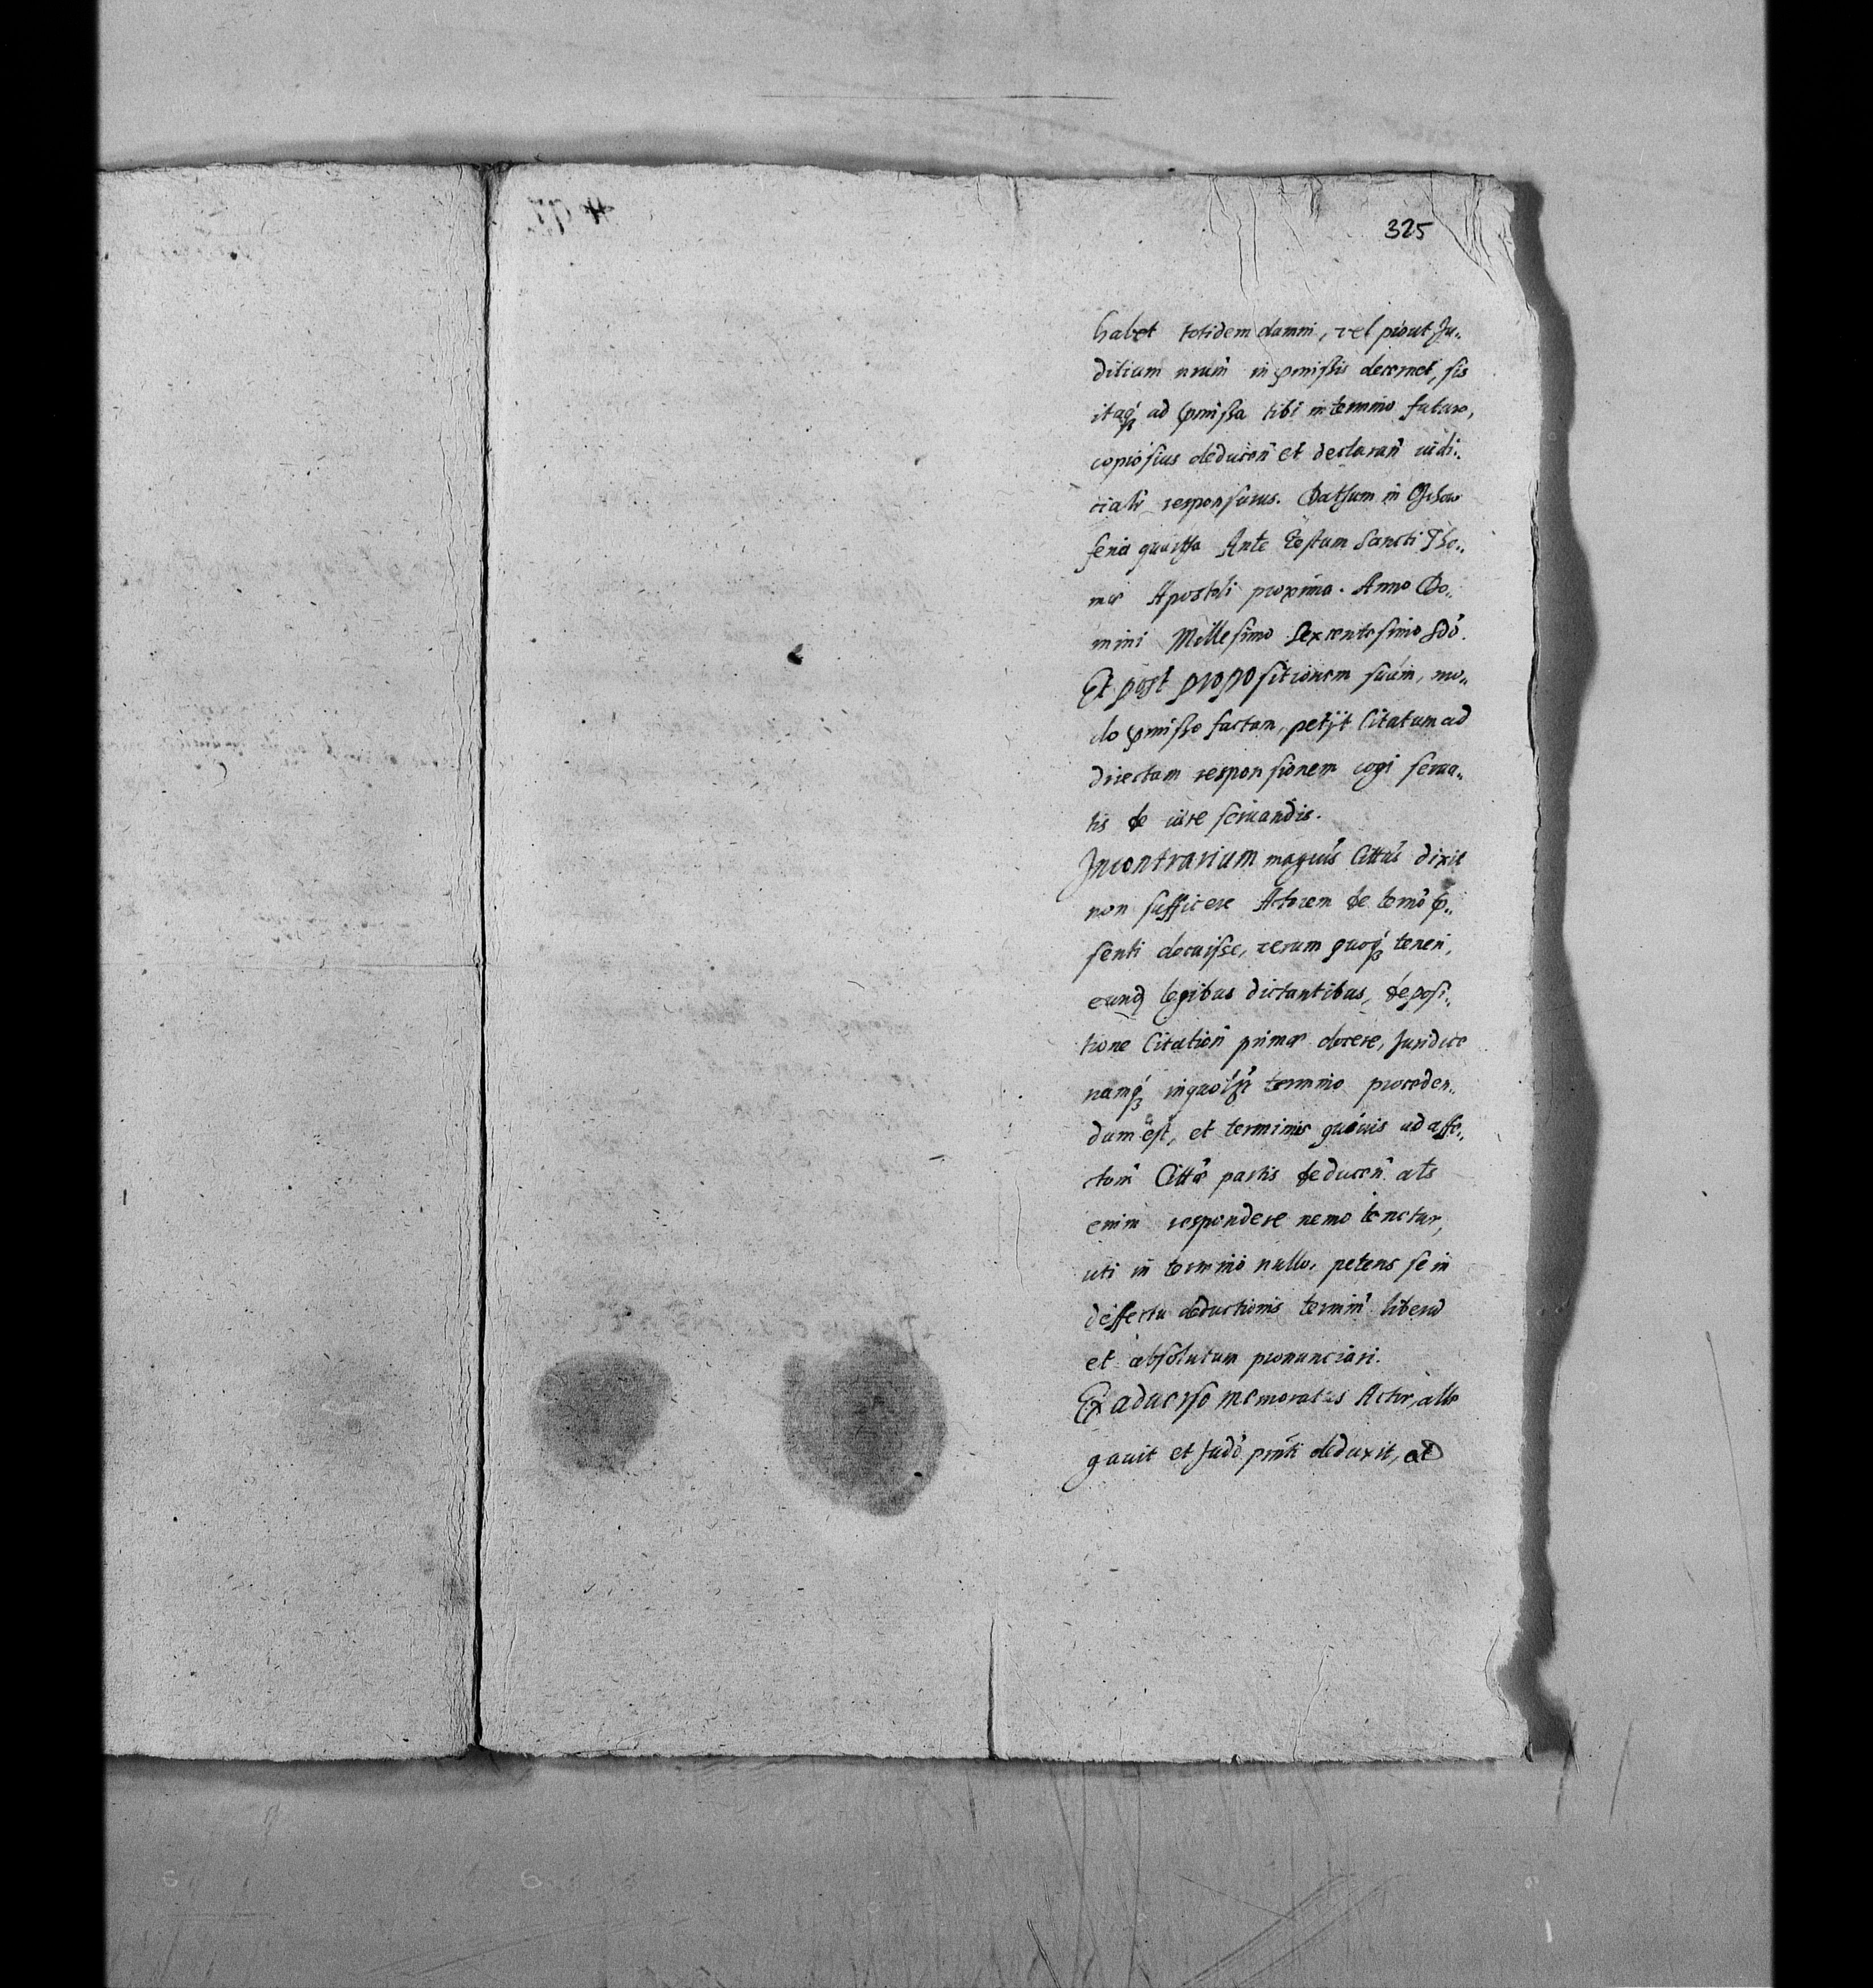 325
habet totidem damni, vel prout Ju„
ditium nrum̃ in p̃missis decernet, sis
itaq́ꝫ ad p̃missa tibi in termino futuro,
copiosius deducen̄ et declaran̄ iudi„
cialr̄ responsurus. Datum in
feria quarta Ante Festum Sancti Tho„
mæ Apostoli proxima. Anno Do„
mini Millesimo Sexcentesimo Sdõ.
Et post propositionem suam, mo„
do p̃misso factam, petÿt Citatum ad
directam responsionem cogi serua„
tis de iure seruandis.
Incontrarium Cittũs dixit
non sufficere Actorem de termõ p̃„
senti docuisse, verum quoq́ꝫ teneri,
eund legibus dictantibus, de posi„
tione Citation̄ primæ docere, Juridice
namq́ꝫ termino proceden„
dum est, et terminus quiuis ad affe„
Cittæ partis deducen̄ als
enim respondere nemo tenetur,
uti in termino nullo, petens se in
deffectu deductionis termini liberũ
et absolutum pronunciari.
Ex aduerso memoratus Actor, alle
gauit et Judõ prñti deduxit, ad